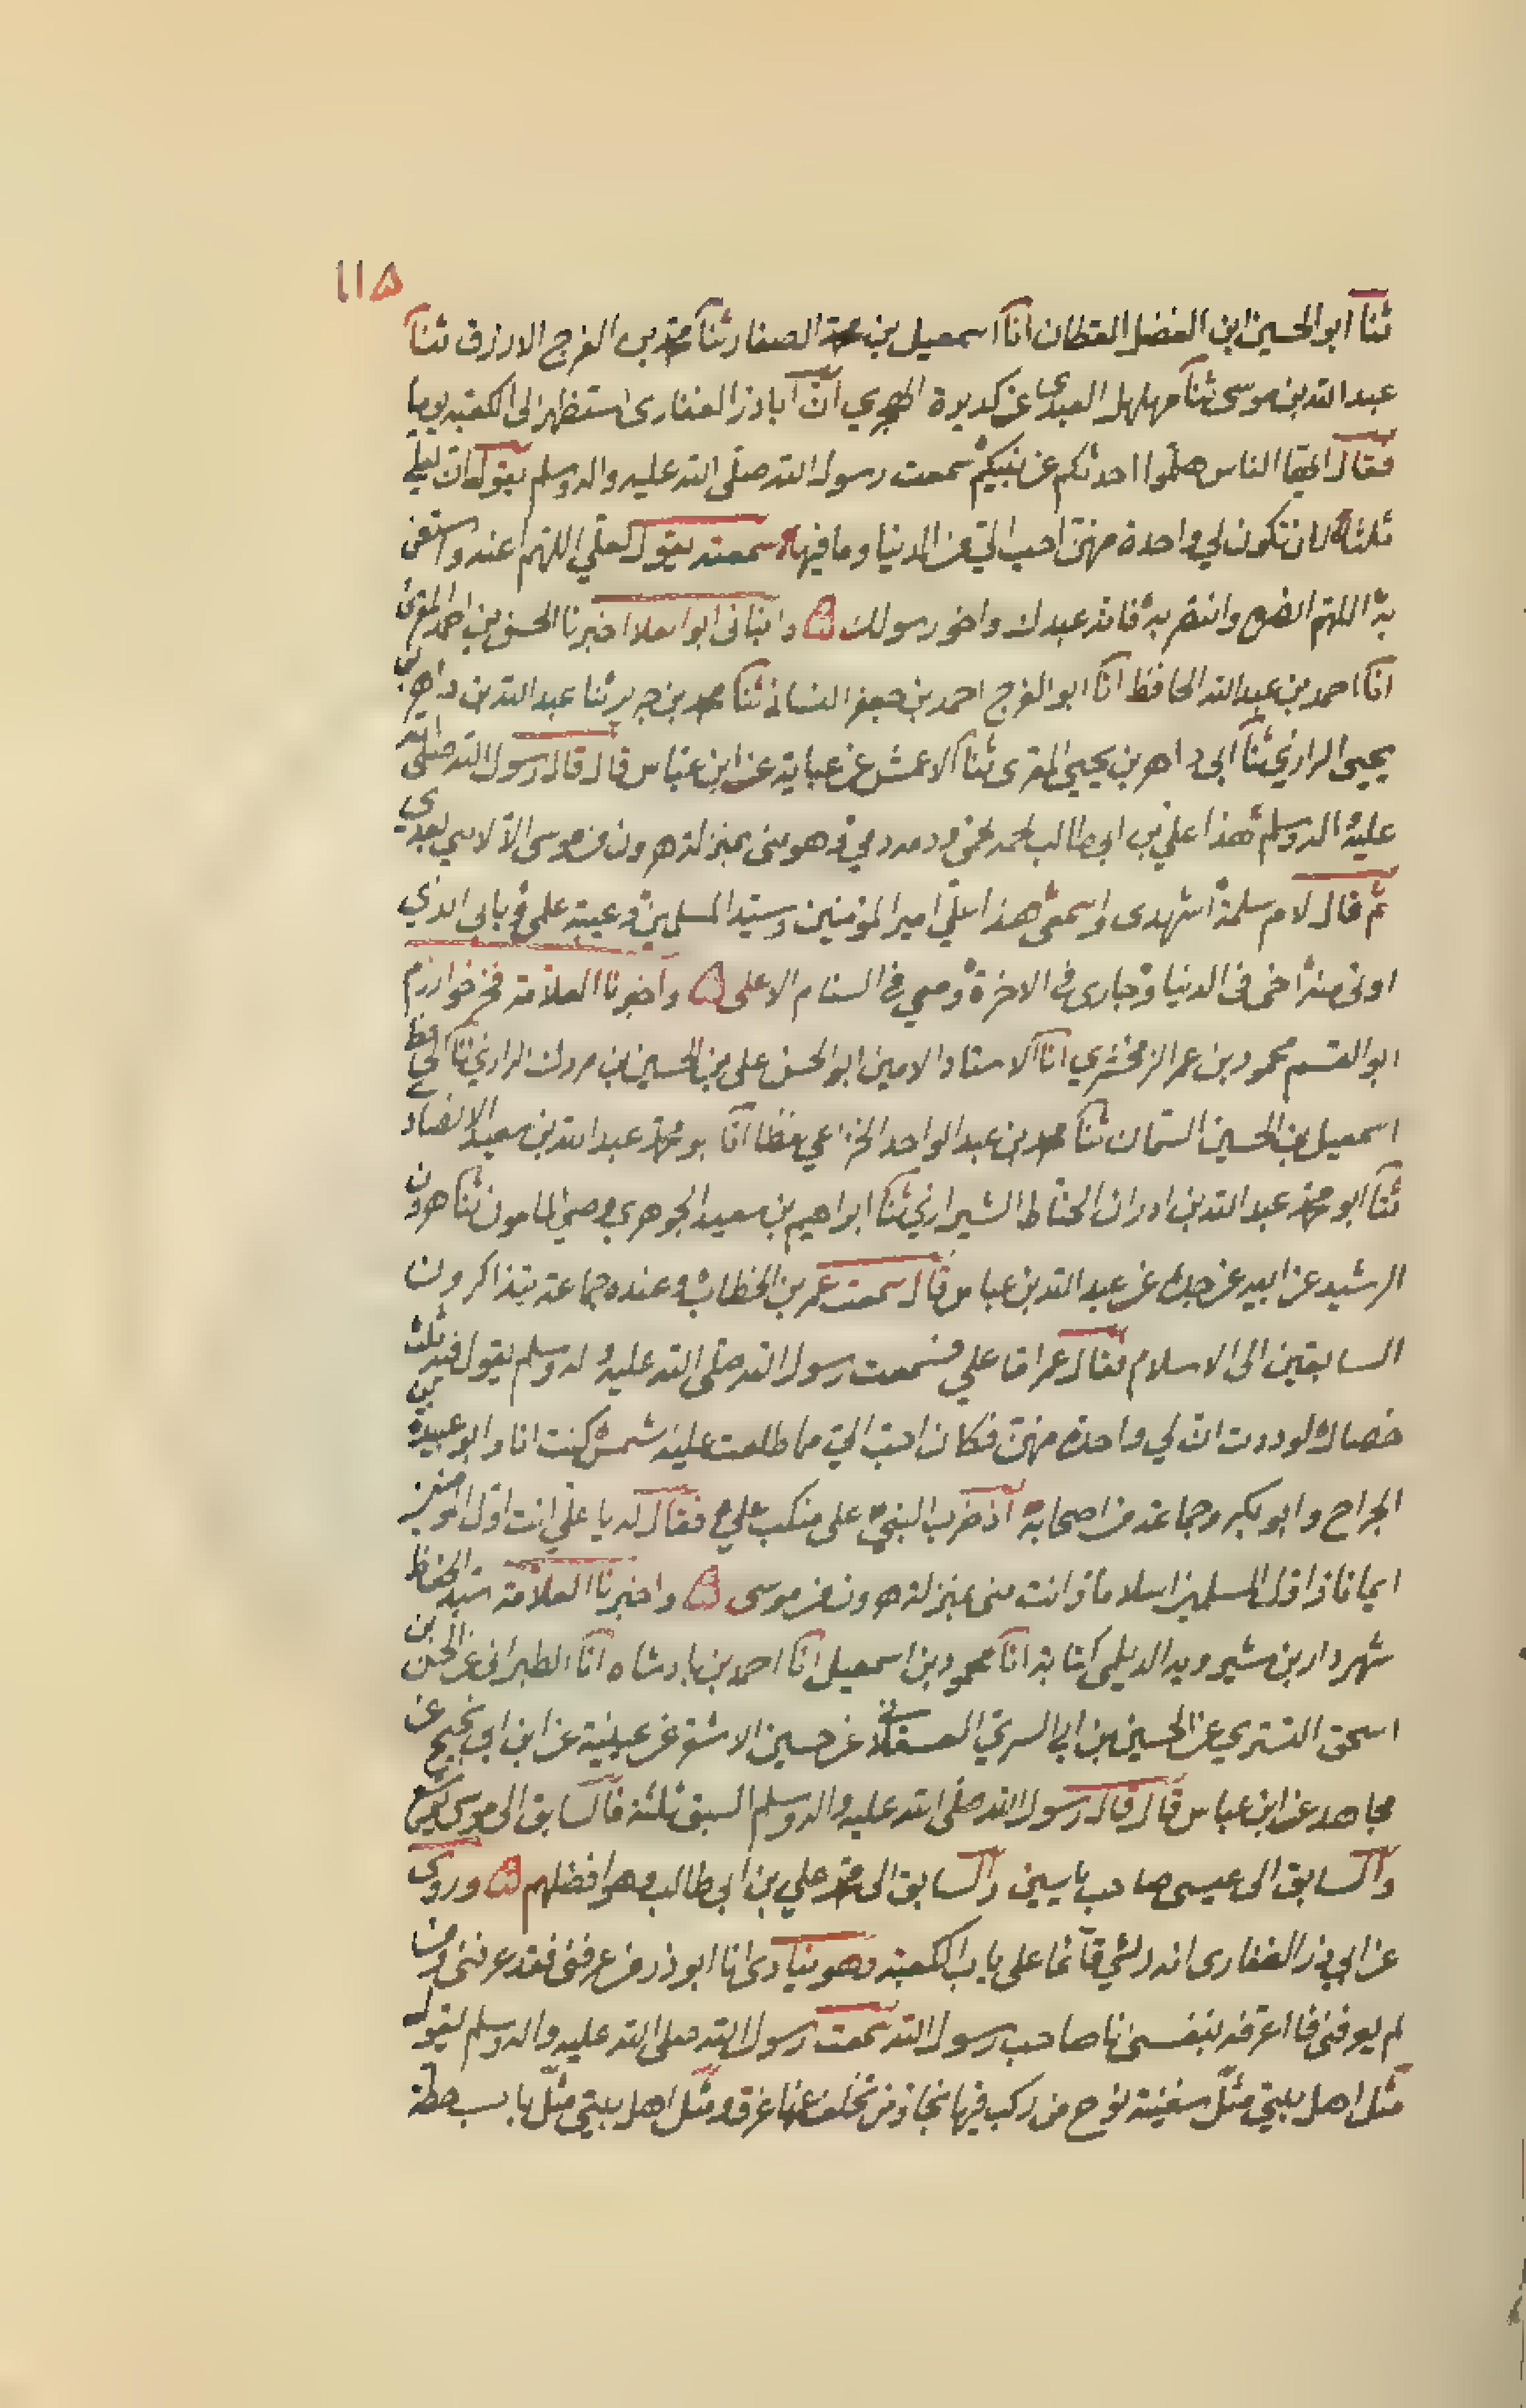 ١١٥
ثنا ابو الحسين ابن الفضل القطان انا اسمعيل بن محمد الصفار ثنا محمد بن الفرج الازرق ثنا
عبد الله بن موسى ثنا مهلهل العبدى عن كديرة الهجري ان اباذر الغفارى استظهر الى الكعبه يوما
فقال ايها الناس هلموا احدثكم عن نبيكم سمعت رسول الله صلى الله عليه واله وسلم يقول لعلي
ثلثا لان تكون لي واحدة منهن احب الي من الدنيا وما فيها سمعته يقول لعلي اللهم اعنه واستعن
به اللهم انصره وانتصر به فانه عبدك واخو رسولك وانبانى ابو العلا اخبرنا الحسن بن احمد المقرئ
انا احمد بن عبد الله الحافظ انا ابو الفرج احمد بن جعفر النسائى ثنا محمد بن جرير ثنا عبد الله بن داهر بن
يحيى الرازي ثنا ابى داهر بن يحيى المقرى ثنا الاعمش عن عباية عن ابن عباس قال قال رسول الله صلى الله
عليه واله وسلم هذا علي بن ابي طالب لحمه لحمي ودمه دمي وهو منى بمنزلة هرون من موسى الا لا نبي بعدي
ثم قال لام سلمة اشهدى واسمعى هذا علي امير المؤمنين وسيد المسلمين وعيبة علمى وبابى الذي
اوتى منه اخى فى الدنيا وجارى فى الاخرة ومعي في السنام الاعلى واخبرنا العلامة فخر خوارزم
ابو القسم محمود بن عمر الزمخشري انا الاستاد الامين ابو الحسن على بن الحسين بن مردك الرازي ثنا الحافظ
اسمعيل بن الحسين السمان ثنا محمد بن عبد الواحد الخزاعي لفظا انا ابو محمد عبد الله بن سعيد الانصارى
ثنا ابو محمد عبد الله بن ادران الخياط الشيرازي ثنا ابراهيم بن سعيد الجوهري وصي المامون ثنا هرون
الرشيد عن ابيه عن جده عن عبد الله بن عباس قال سمعت عمر بن الخطاب وعنده جماعة يتذاكرون
السابقين الى الاسلام فقال عمر اما علي فسمعت رسول الله صلى الله عليه واله وسلم يقول فيه ثلث
خصال لوددت ان لي واحدة منهن فكان احب الي مما طلعت عليه شمش كنت انا وابو عبيدة بن
الجراح وابو بكر وجماعة من اصحابه اذ ضرب النبي على منكب علي فقال له يا علي انت اول المؤمنين
ايمانا واول المسلمين اسلاما وانت منى بمنزلة هرون من موسى واخبرنا العلامة سيد الحفاظ
شهردار بن شيرويه الديلمى كتابة انا محمود بن اسمعيل انا احمد بن بادشاه انا الطبرانى عن الحسين بن
اسحق التسترى عن الحسين بن ابي السري العسقلانى عن حسين الاشقر عن عيينة عن ابن ابي نجيح عن
مجاهد عن ابن عباس قال قال رسول الله صلى الله عليه واله وسلم السبق ثلثة فالسابق الى موسى يوشع
والسابق الى عيسى صاحب ياسين والسابق الى محمد علي بن ابي طالب وهو افضلهم وروى
عن ابي ذر الغفارى انه رئي قائما على باب الكعبه وهو ينادى انا ابو ذر من عرفنى فقد عرفنى ومن
لم يعرفنى فانا اعرفه بنفسى انا صاحب رسول الله سمعت رسول الله صلى الله عليه واله وسلم يقول
مثل اهل بيتي مثل سفينة نوح من ركب فيها نجا ومن تخلف عنها غرق ومثل اهل بيتي مثل باب حطة